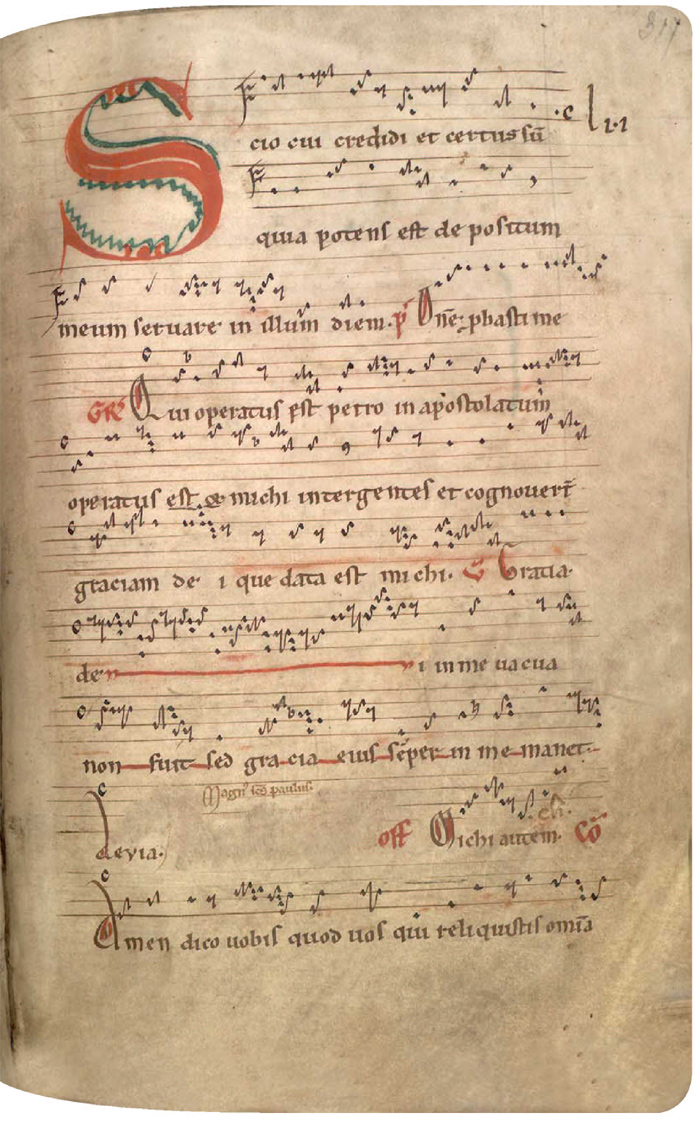 317
Scio cui credidi et certus sū
quia potens est depositum
meum servare in illum diem. ps̄ Dn̄e p̄basti me
GR̄ Qui operatus est petro in apostolatum
operatus est & michi inter gentes et cognoverūt
graciam de i que data est michi. V̄ Gratia
de i in me vacua
non fuit sed gracia eius sēper in me manet.
Magn᷒ sc̄s paulus.
alleuia.
off Michi autem. Cō
Amen dico vobis quod vos qui reliquistis om̄ia